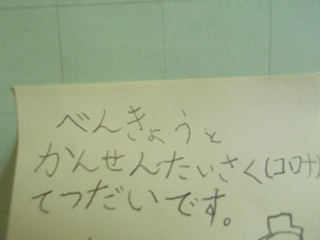 べんきょうと
かんせんたいさく(コロナ)
てつだいです。